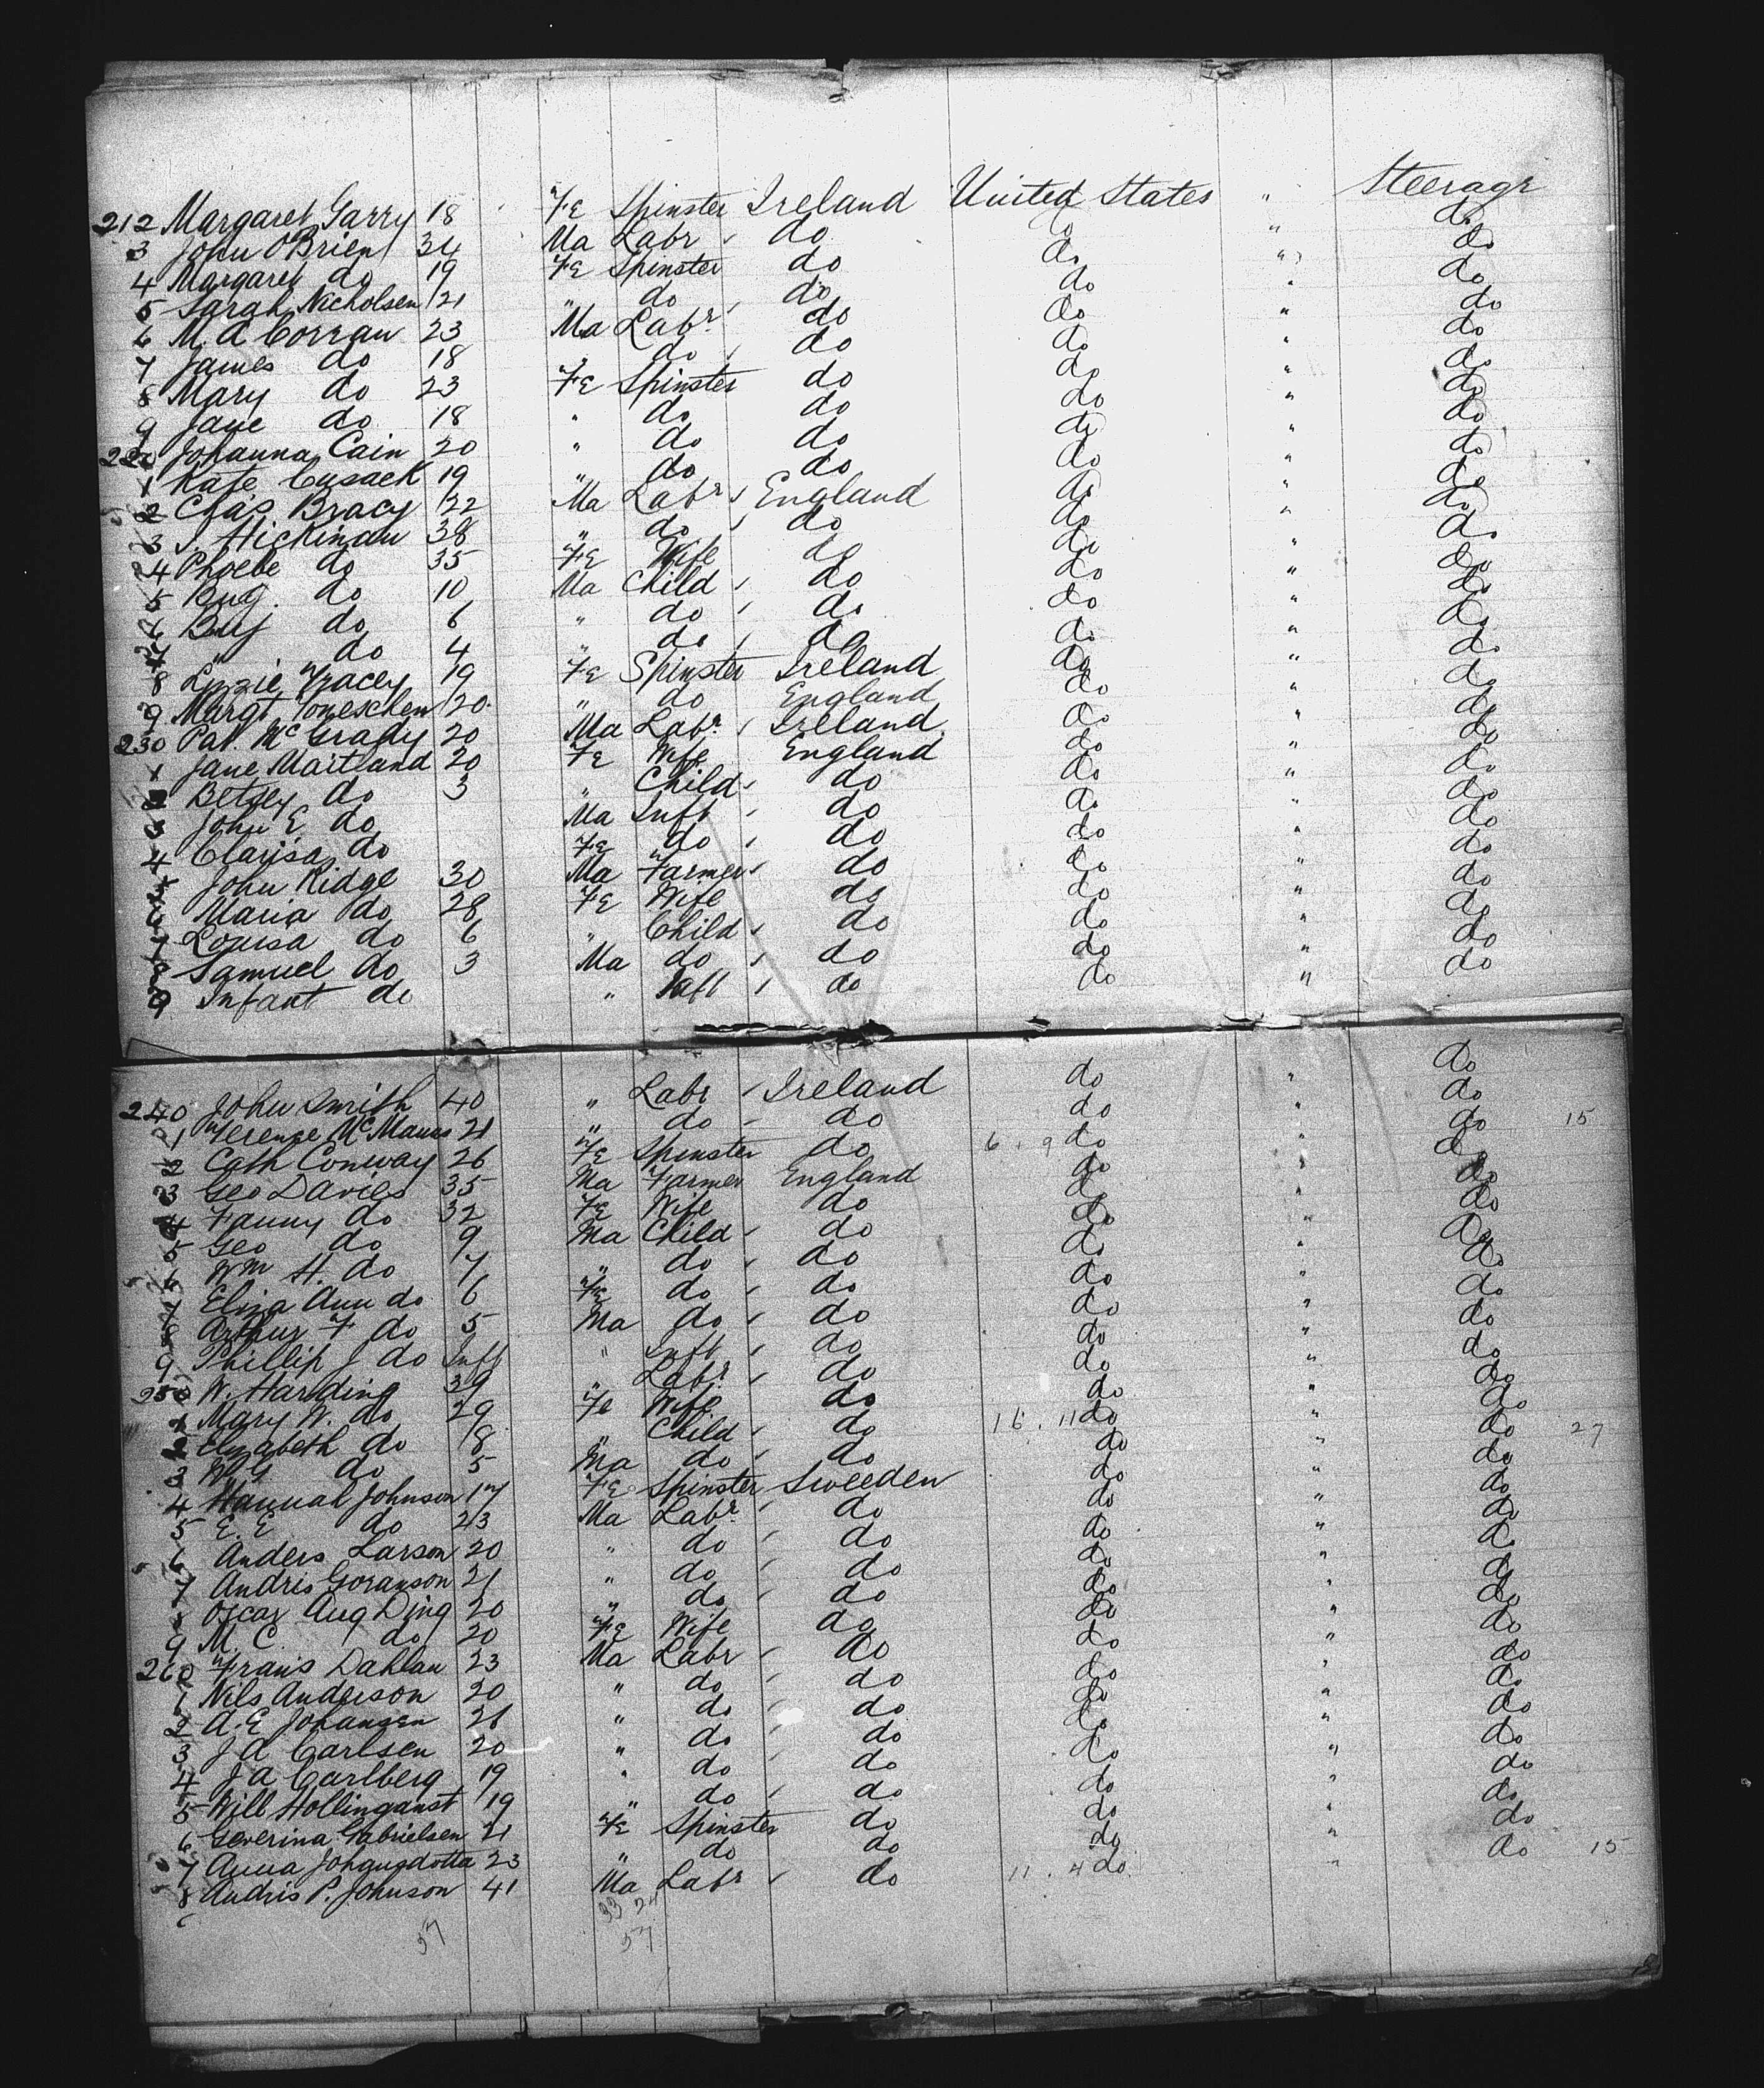 212 Margaret Garry 18 Fe Spinster Ireland United States " Steerage
3 John O'Brien 34 Ma Labr do do " do
4 Margaret do 19 Fe Spinster do do " do
5 Sarah Nicholsen 21 " do do do " do
6 M. A Corran 23 Ma Labr do do " do
7 James do 18 do do do " do
8 Mary do 23 Fe Spinster do do " do
9 Jane do 18 " do do do " do
220 Johanna Cain 20 " do do do " do
1 Kate Cusack 19 " do do do " do
2 Chas Bracy 22 Ma Labr England do " do
3 J. Hickman 38 " do do do " do
4 Phoebe do 35 Fe Wife do do " do
5 do 10 Ma Child do do " do
6 do 6 " do do do " do
7 " do 4 " do do do " do
8 Lizzie Tracey 19 Fe Spinster Ireland do " do
9 Margt 20 " do England do " do
230 Pat. McGrady 20 Ma Labr Ireland do " do
1 Jane Maitland 20 Fe Wife England do " do
2 Betsey do 3 " Child do do " do
3 John E do Ma Inft do do " do
4 Clarisa do Fe do do do " do
5 John Ridge 30 Ma Farmer do do " do
6 Maria do 28 Fe Wife do do " do
7 Louisa do 6 " Child do do " do
8 Samuel do 3 Ma do do do " do
9 Infant do " Inft do do " do
240 John Smith 40 " Labr Ireland do " do
1 Terence McManus 21 " do do do " do 15
2 Cath Conway 26 Fe Spinster do 6 . 9 do " do
3 Geo Davies 35 Ma Farmer England do " do
4 Fanny do 32 Fe Wife do do " do
5 Geo do 9 Ma Child do do " do
6 Wm H. do 7 " do do do " do
7 Eliza Ann do 6 Fe do do do " do
8 Arthur F do 5 Ma do do do " do
9 Phillip J do Inft " Inft do do " do
250 W. Harding 39 " Labr do do " do
1 Mary W. do 29 Fe Wife do do " do
2 Elizabeth do 8 " Child do 16 . 11 do " do 27
3 W G do 5 Ma do do do " do
4 Hannah Johnson 17 Fe Spinster Sweeden do " do
5 E. E do 23 Ma Labr do do " do
6 Anders Larson 20 " do do do " do
7 Andris Goranson 21 " do do do " do
8 Oscar Aug Ding 20 " do do do " do
9 M. C. do 20 Fe Wife do do " do
260 Frans Dahlan 23 Ma Labr do do " do
1 Nils Anderson 20 " do do do " do
2 A. E Johansen 26 " do do do " do
3 J A Carlsen 20 " do do do " do
4 J A Carlberg 19 " do do do " do
5 Will Hollinganst 19 " do do do " do
6 Severina Gabrielsen 21 Fe Spinster do do " do
7 Anna Johansdotta 23 " do do do " do
8 Andris P. Johnson 41 Ma Labr do 11 . 4 do " do 15
57 33 24
57